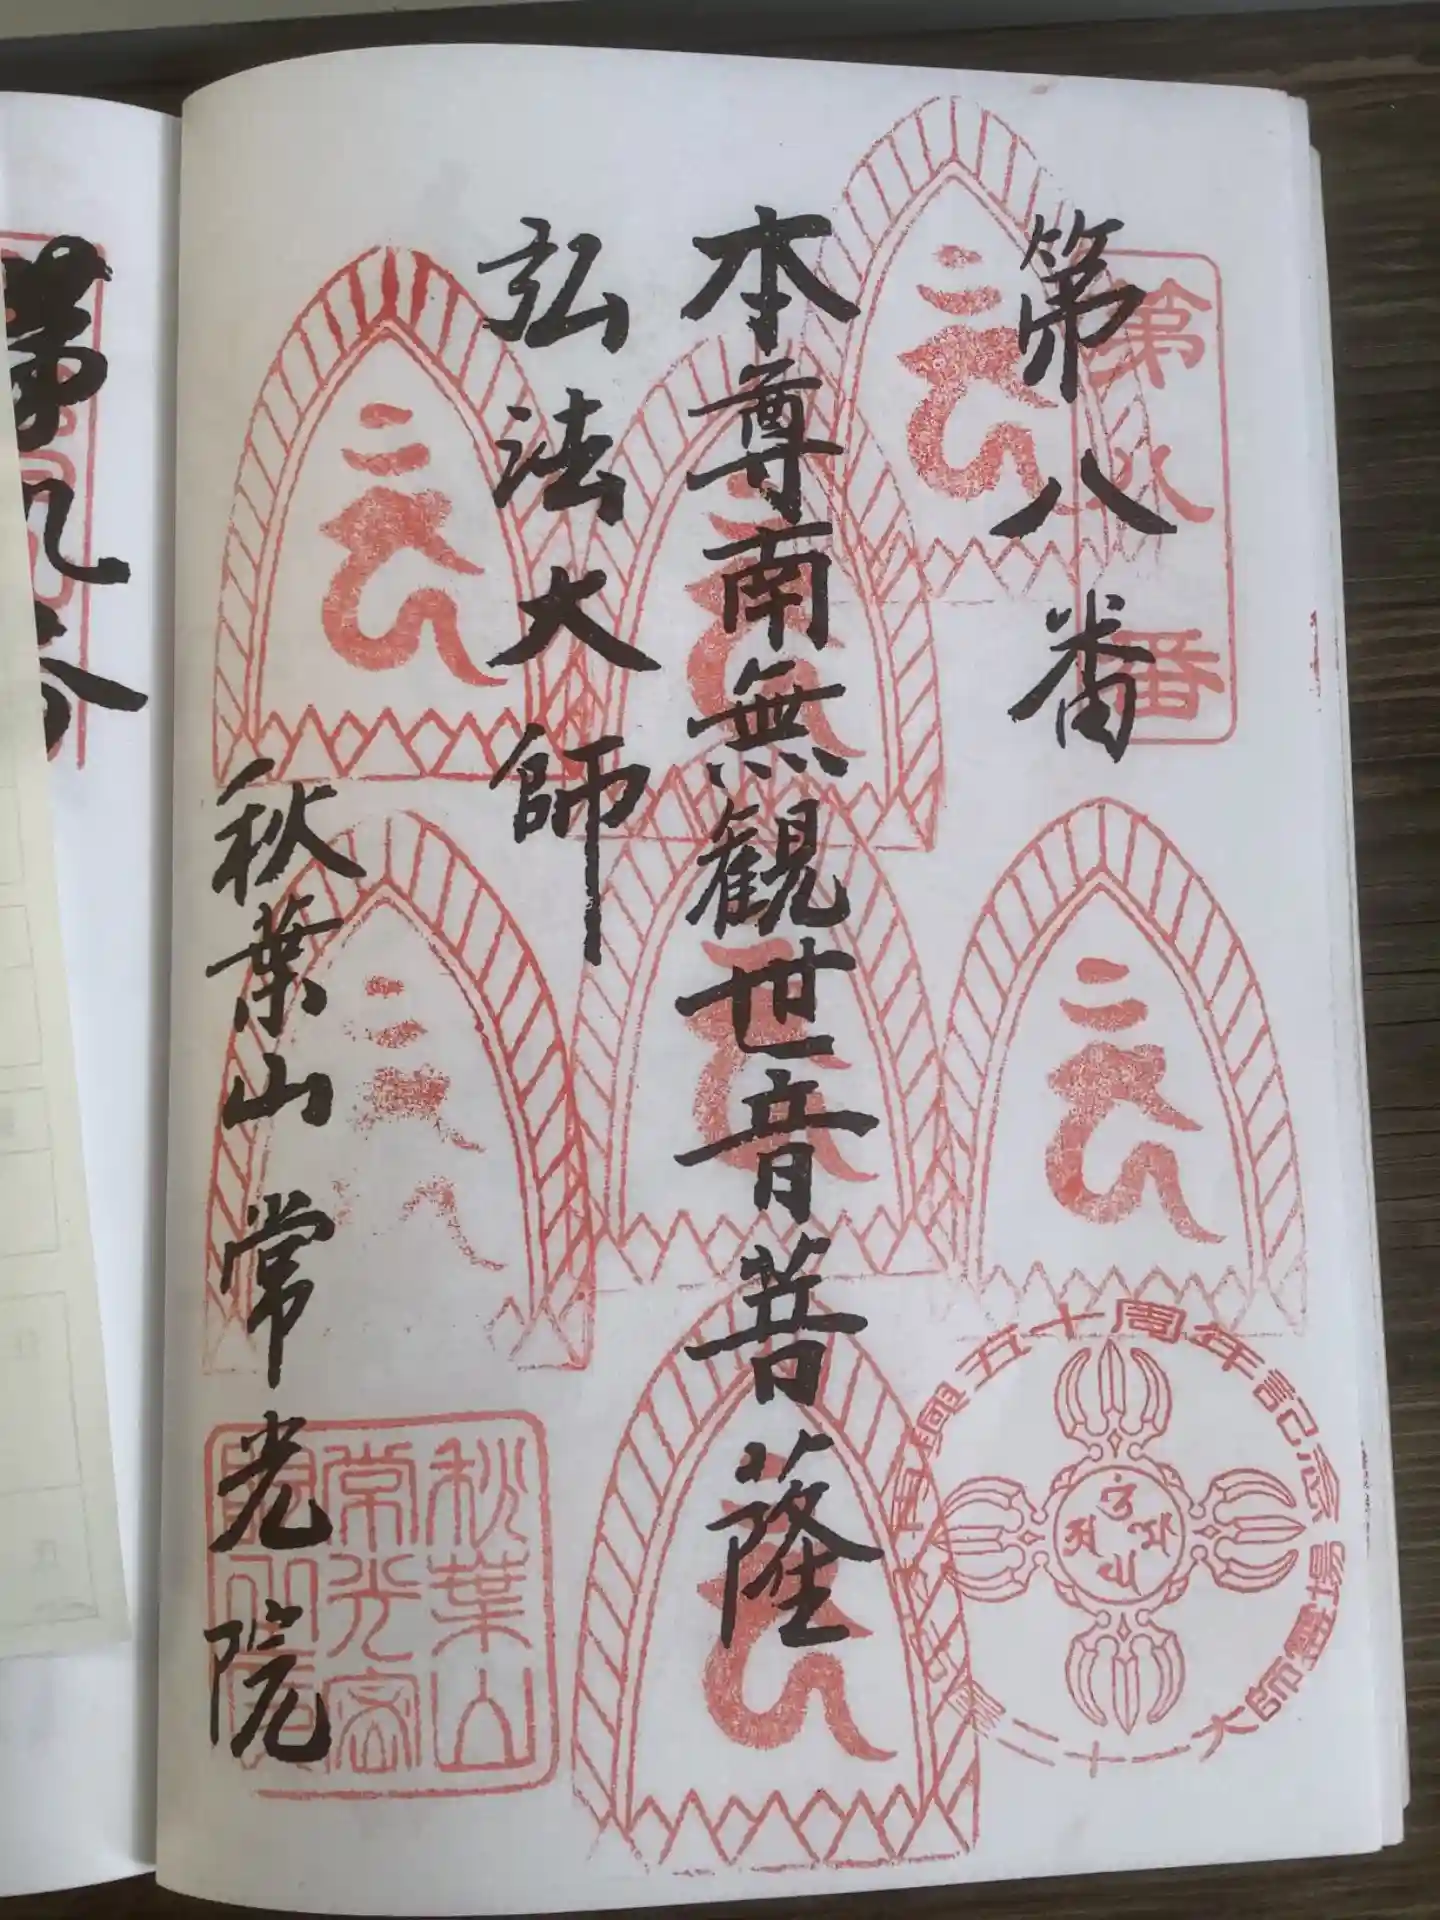 第八番
本尊南無観世音菩薩
弘法大師
秋葉山常光院
第八番
再興五十周年記念
大師霊場
二十一
秋葉山
常光密
第九番